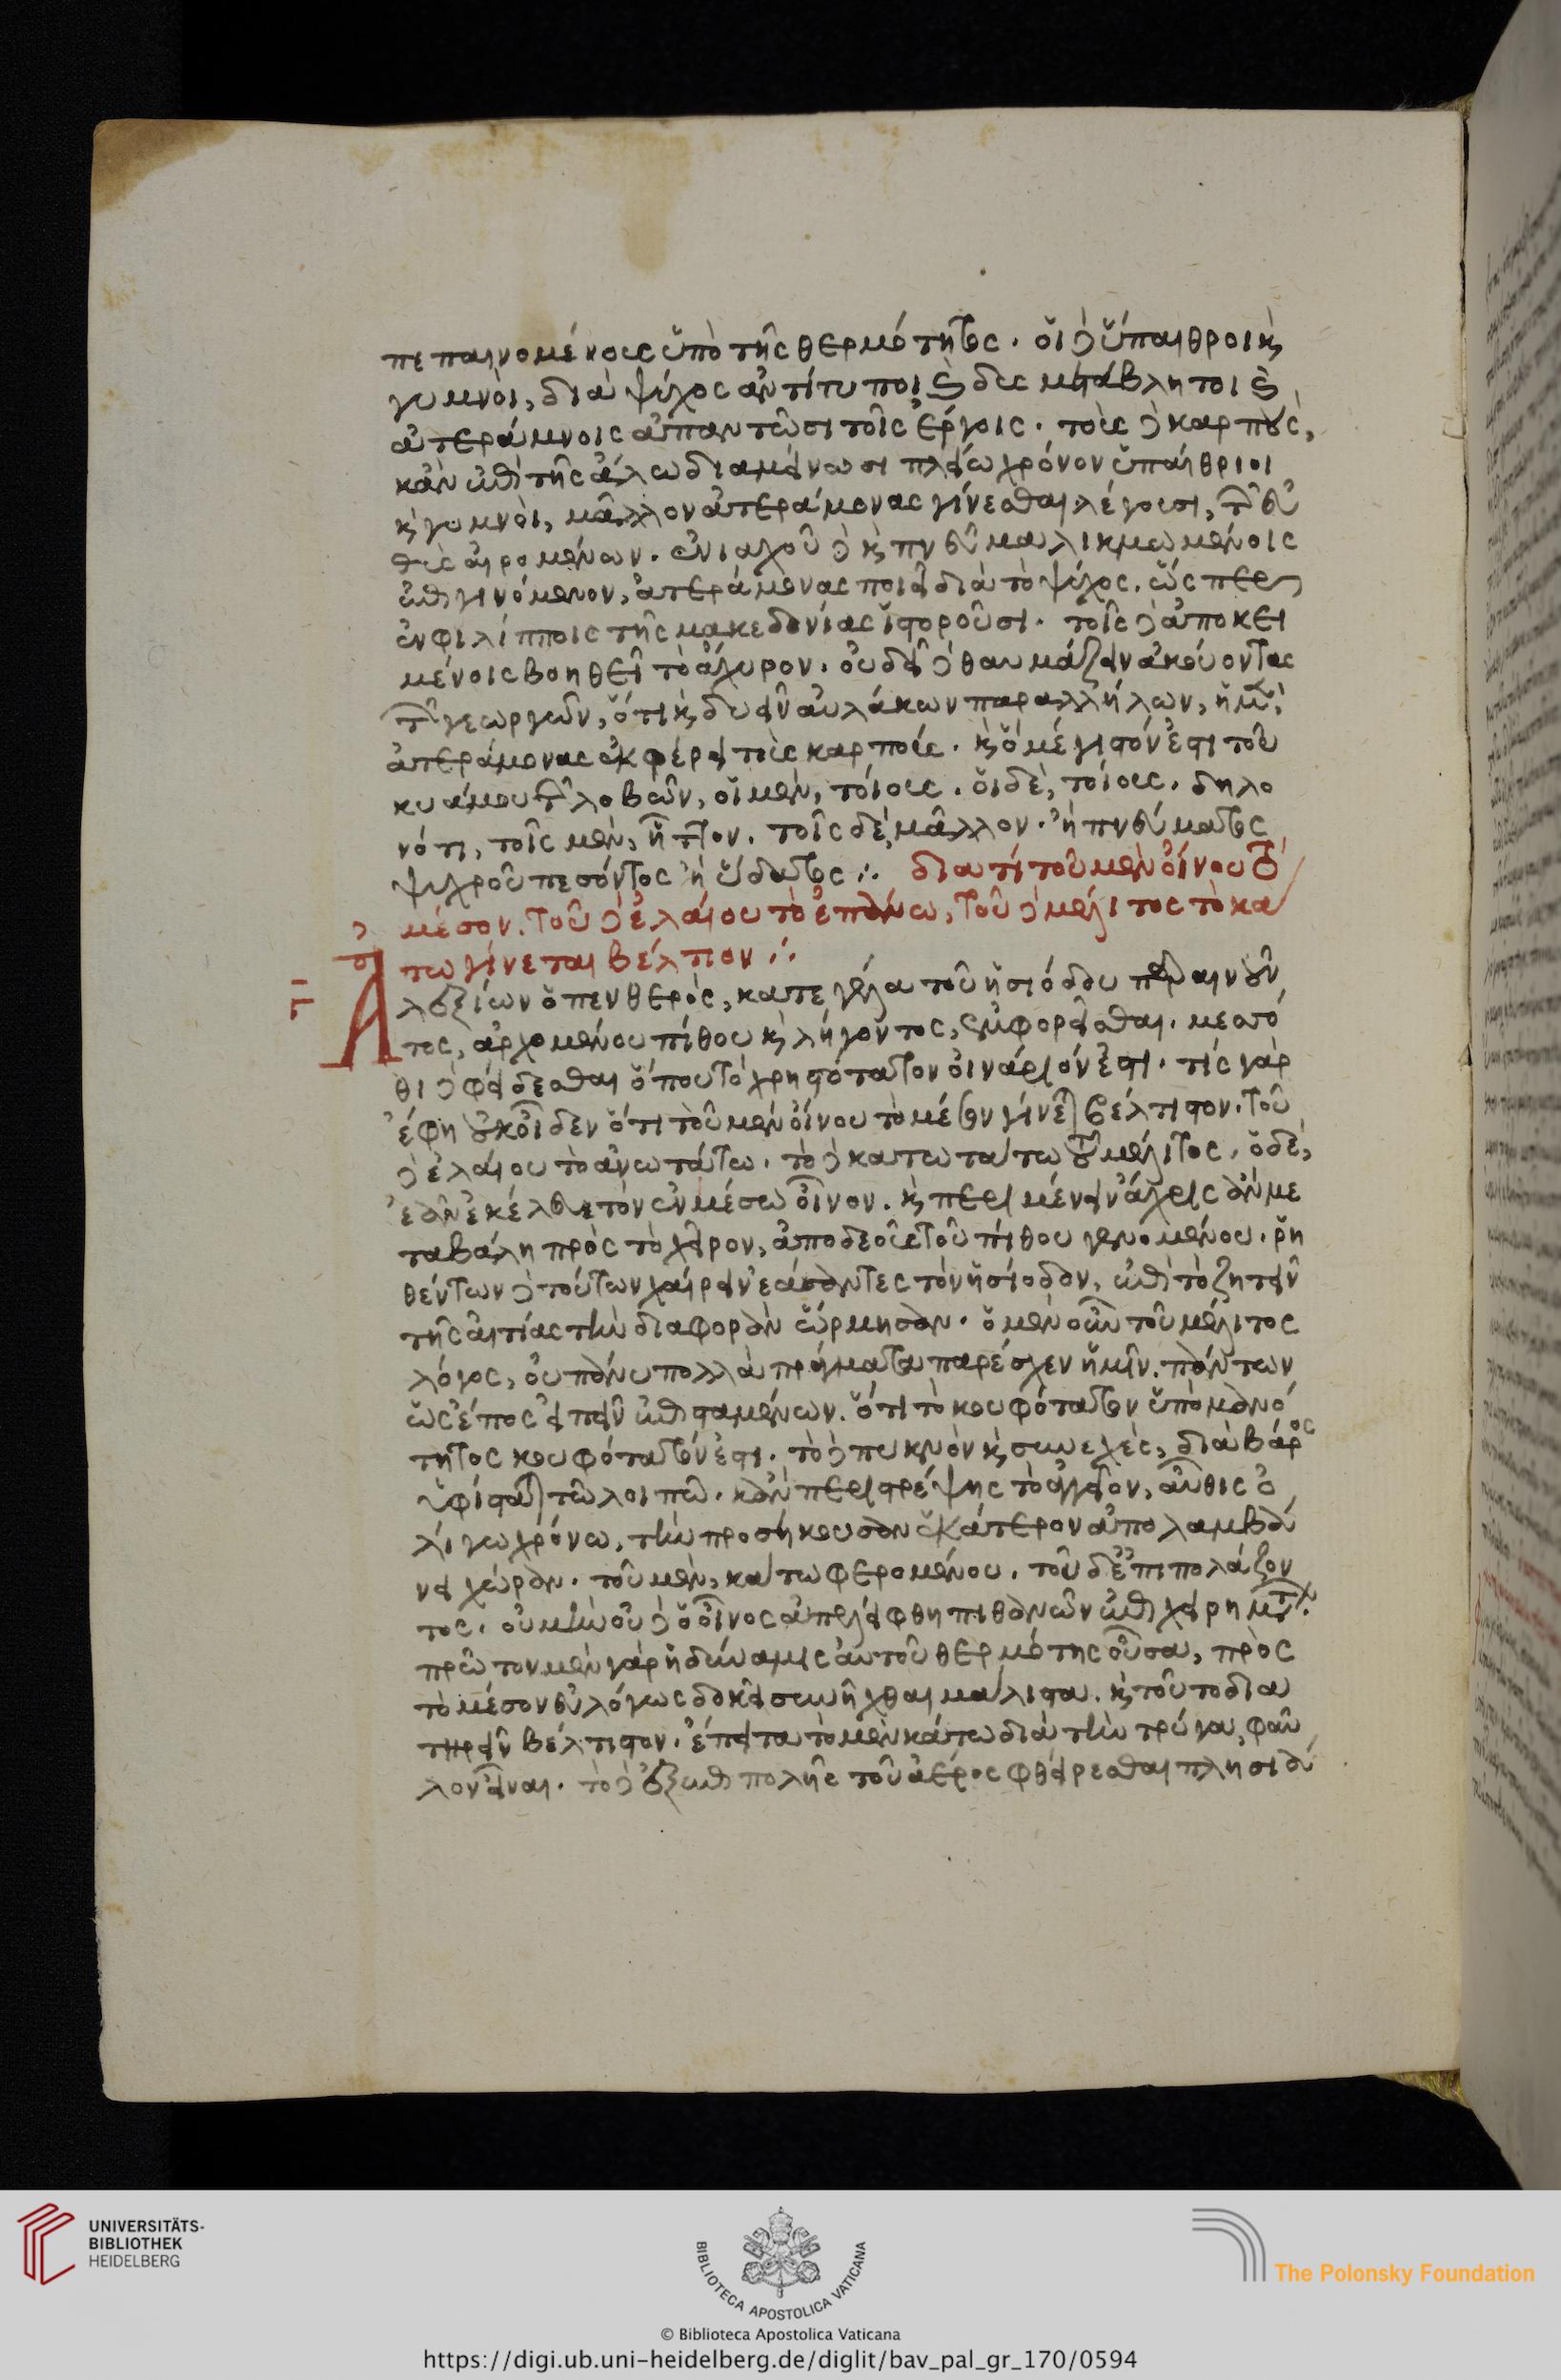 πεπαινομένους ὑπὸ τῆς θερμότητος. οἱ δ ὕπαιθροι κ
γυμνοὶ, διὰ ψύχος ἀντίτυποι κ δυσμετάβλητοι κ
ἀτεράμνοις ἀπαντῶσι τοῖς ἔργοις. τοὺς δὲ καρποὺς,
κἂν ἐπὶ τῆς ἅλω διαμείνωσι πλείω χρόνον ὑπαίθριοι
κ γυμνοὶ, μᾶλλον ἀτεράμονας γίνεσθαι λέγουσι, τῶν εὐ
θὺς αἰρομένων. ἐνιαχοῦ δὲ κ πνεῦμα λικμωμένοις
ἐπιγινόμενον, ἀτεράμονας ποιεῖ διὰ τὸ ψύχος. ὥσπερ
ἐν φιλίπποις τῆς μακεδονίας ἱστοροῦσι. τοῖς δὲ ἀποκει
μένοις βοηθεῖ τὸ ἄχυρον. οὐ δεῖ δὲ θαυμάζειν ἀκούοντας
τῶν γεωργῶν, ὅτι κ δυεῖν αὐλάκων παραλλήλων, ἡ μὲν,
ἀτεράμονας ἐκφέρει τοὺς καρπούς. κ ὃ μέγιστόν ἐστι τοῦ
κυάμου τῶν λοβῶν, οἱ μὲν, τοίους. οἱ δὲ, τοίους. δηλο
νότι, τοῖς μὲν, ἧττον. τοῖς δὲ, μᾶλλον. ἢ πνεύματος
ψυχροῦ πεσόντος ἢ ὕδατος ∴ διατί τοῦ μὲν οἴνου τὸ
μέσον. τοῦ δὲ ἐλαίου τὸ ἐπάνω, τοῦ δὲ μέλιτος τὸ κά
τω γίνεται βέλτιον ∴
γ Ἀλεξίων ὁ πενθερὸς, κατεγέλα τοῦ ἡσιόδου παραινοῦν
τος, ἀρχομένου πίθου κ λήγοντος, ἐμφορεῖσθαι. μεσσό
θι δὲ φείδεσθαι ὅπου τὸ χρηστότατον οἰνάριόν ἐστι. τίς γὰρ
ἔφη οὐκ οἶδεν ὅτι τοῦ μὲν οἴνου τὸ μέσον γίνεται βέλτιστον. τοῦ
δὲ ἐλαίου τὸ ἀνωτάτω. τὸ δὲ κατωτάτω τοῦ μέλιτος. ὁ δὲ,
ἐᾶν ἐκέλευε τὸν ἐν μέσῳ οἶνον. κ περιμένειν ἄχρις ἂν με
ταβάλῃ πρὸς τὸ χεῖρον, ἀποδεοῦς τοῦ πίθου γενομένου. ῥη
θέντων δὲ τούτων χαίρειν ἐάσαντες τὸν ἡσίοδον, ἐπὶ τὸ ζητεῖν
τῆς αἰτίας τὴν διαφορὰν ὥρμησαν. ὁ μὲν οὖν τοῦ μέλιτος
λόγος, οὐ πάνυ πολλὰ πράγματα παρέσχεν ἡμῖν. πάντων
ὡς ἔπος εἰπεῖν ἐπισταμένων. ὅτι τὸ κουφότατον ὑπὸ μανό
τητος κουφότατόν ἐστι. τὸ δὲ πυκνὸν κ συνεχὲς, διὰ βάρος
ὑφίσταται τῶ λοιπῶ. κἂν περιστρέψῃς τὸ ἀγγεῖον, αὖθις ὀ
λίγῳ χρόνῳ, τὴν προσήκουσαν ἑκάτερον ἀπολαμβά
νει χώραν. τοῦ μὲν, κάτω φερομένου. τοῦ δ ἐπιπολάζον
τος. οὐ μὴν οὐδὲ ὁ οἶνος ἀπελείφθη πιθανῶν ἐπιχειρημάτων.
πρῶτον μὲν γὰρ ἡ δύναμις αὐτοῦ θερμότης οὖσα, πρὸς
τὸ μέσον εὐλόγως δοκεῖ συνῆχθαι μάλιστα. κ τοῦτο δια
τηρεῖν βέλτιστον. ἔπειτα τὸ μὲν κάτω διὰ τὴν τρύγα, φαῦ
λον εἶναι. τὸ δ ἐξ ἐπιπολῆς τοῦ ἀέρος φθείρεσθαι πλησια
UNIVERSITÄTS-
BIBLIOTHEK
HEIDELBERG
BIBLIOTECA APOSTOLICA VATICANA
The Polonsky Foundation
© Biblioteca Apostolica Vaticana
https://digi.ub.uni-heidelberg.de/diglit/bav_pal_gr_170/0594